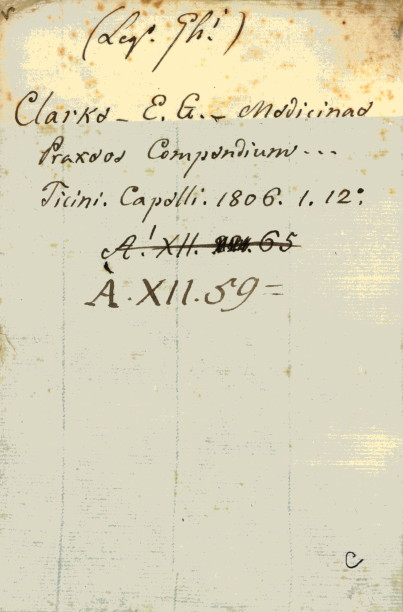 (Leg. Ghi)
Clarke - E. G. - Medicinae
Praxeos Compendium ...
Ticini. Capelli. 1806. 1. 12°.
A. XII. 65
A. XII. 59 =
C